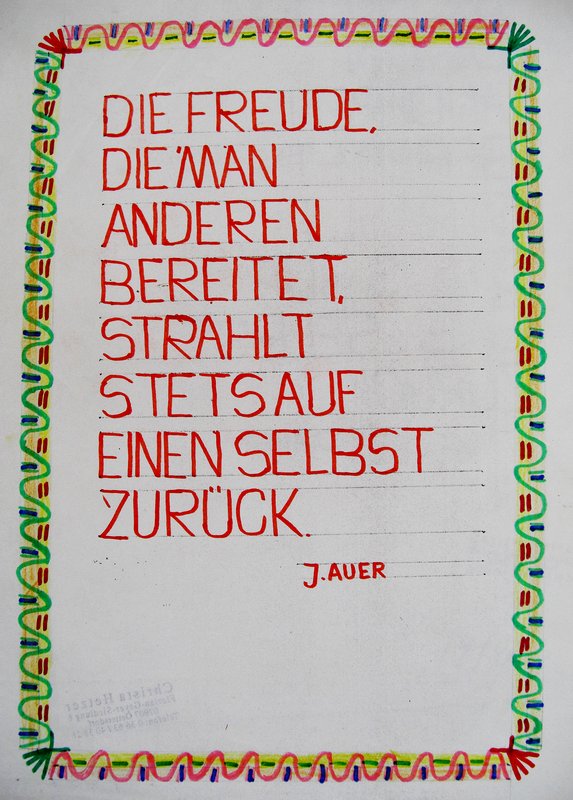 DIE FREUDE,
DIE MAN
ANDEREN
BEREITET,
STRAHLT
STETS AUF
EINEN SELBST
ZURÜCK.
J. AUER
Christa Hetzer